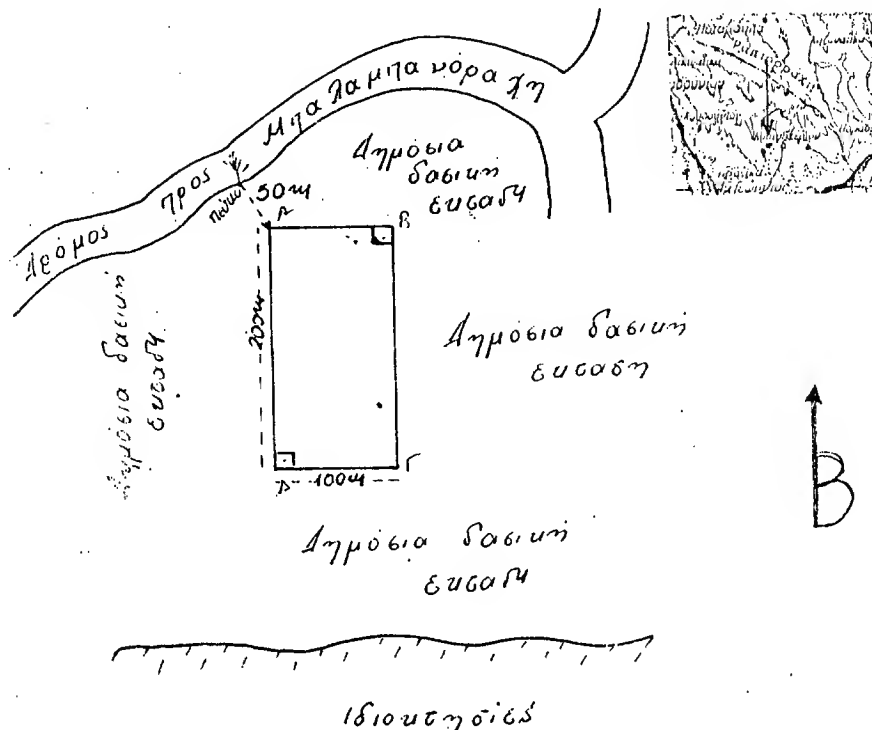 Δρόμος προς Μπαλαμπανόραχη
Πεύκο
50m
Α
Β
Δημόσια
δασική
έκταση
200m
Δημόσια δασική
έκταση
Δημόσια δασική
έκταση
Δ
100m
Γ
Β
Δημόσια δασική
έκταση
Ιδιοκτησίες